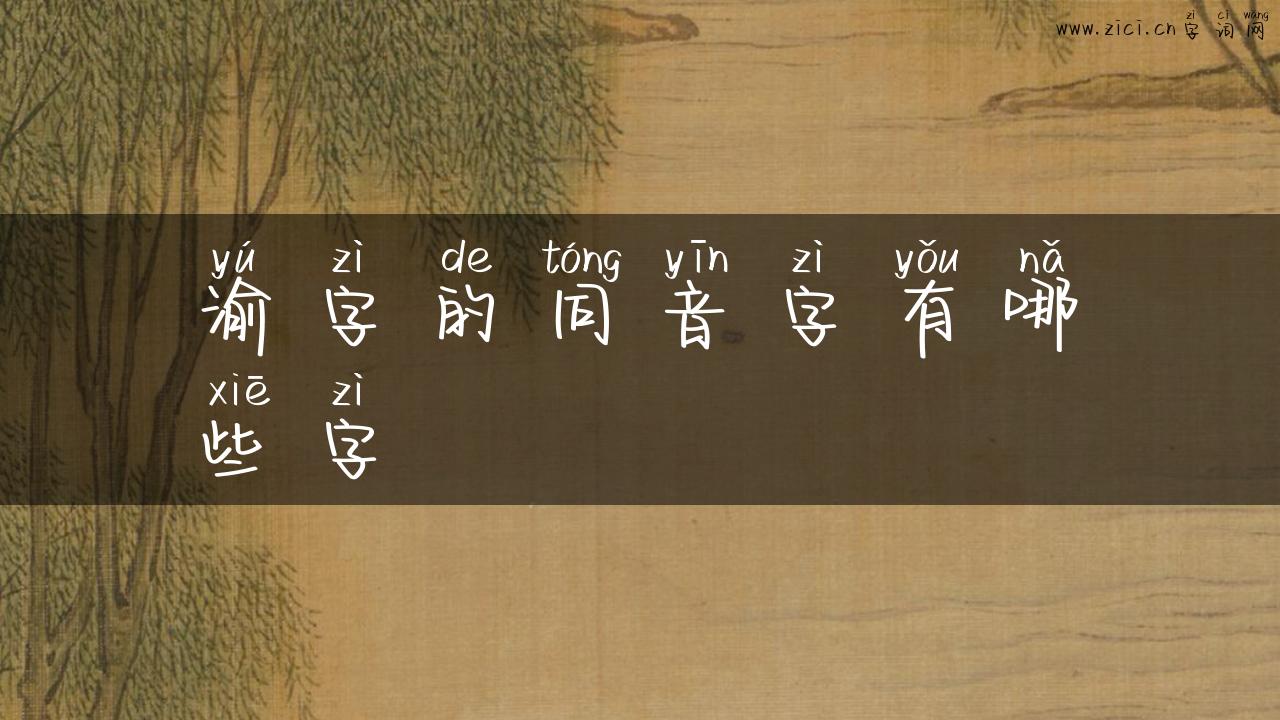 zì cí wǎng
www.zici.cn 字 词 网
yú zì de tóng yīn zì yǒu nǎ
渝 字 的 同 音 字 有 哪
xiē zì
些 字